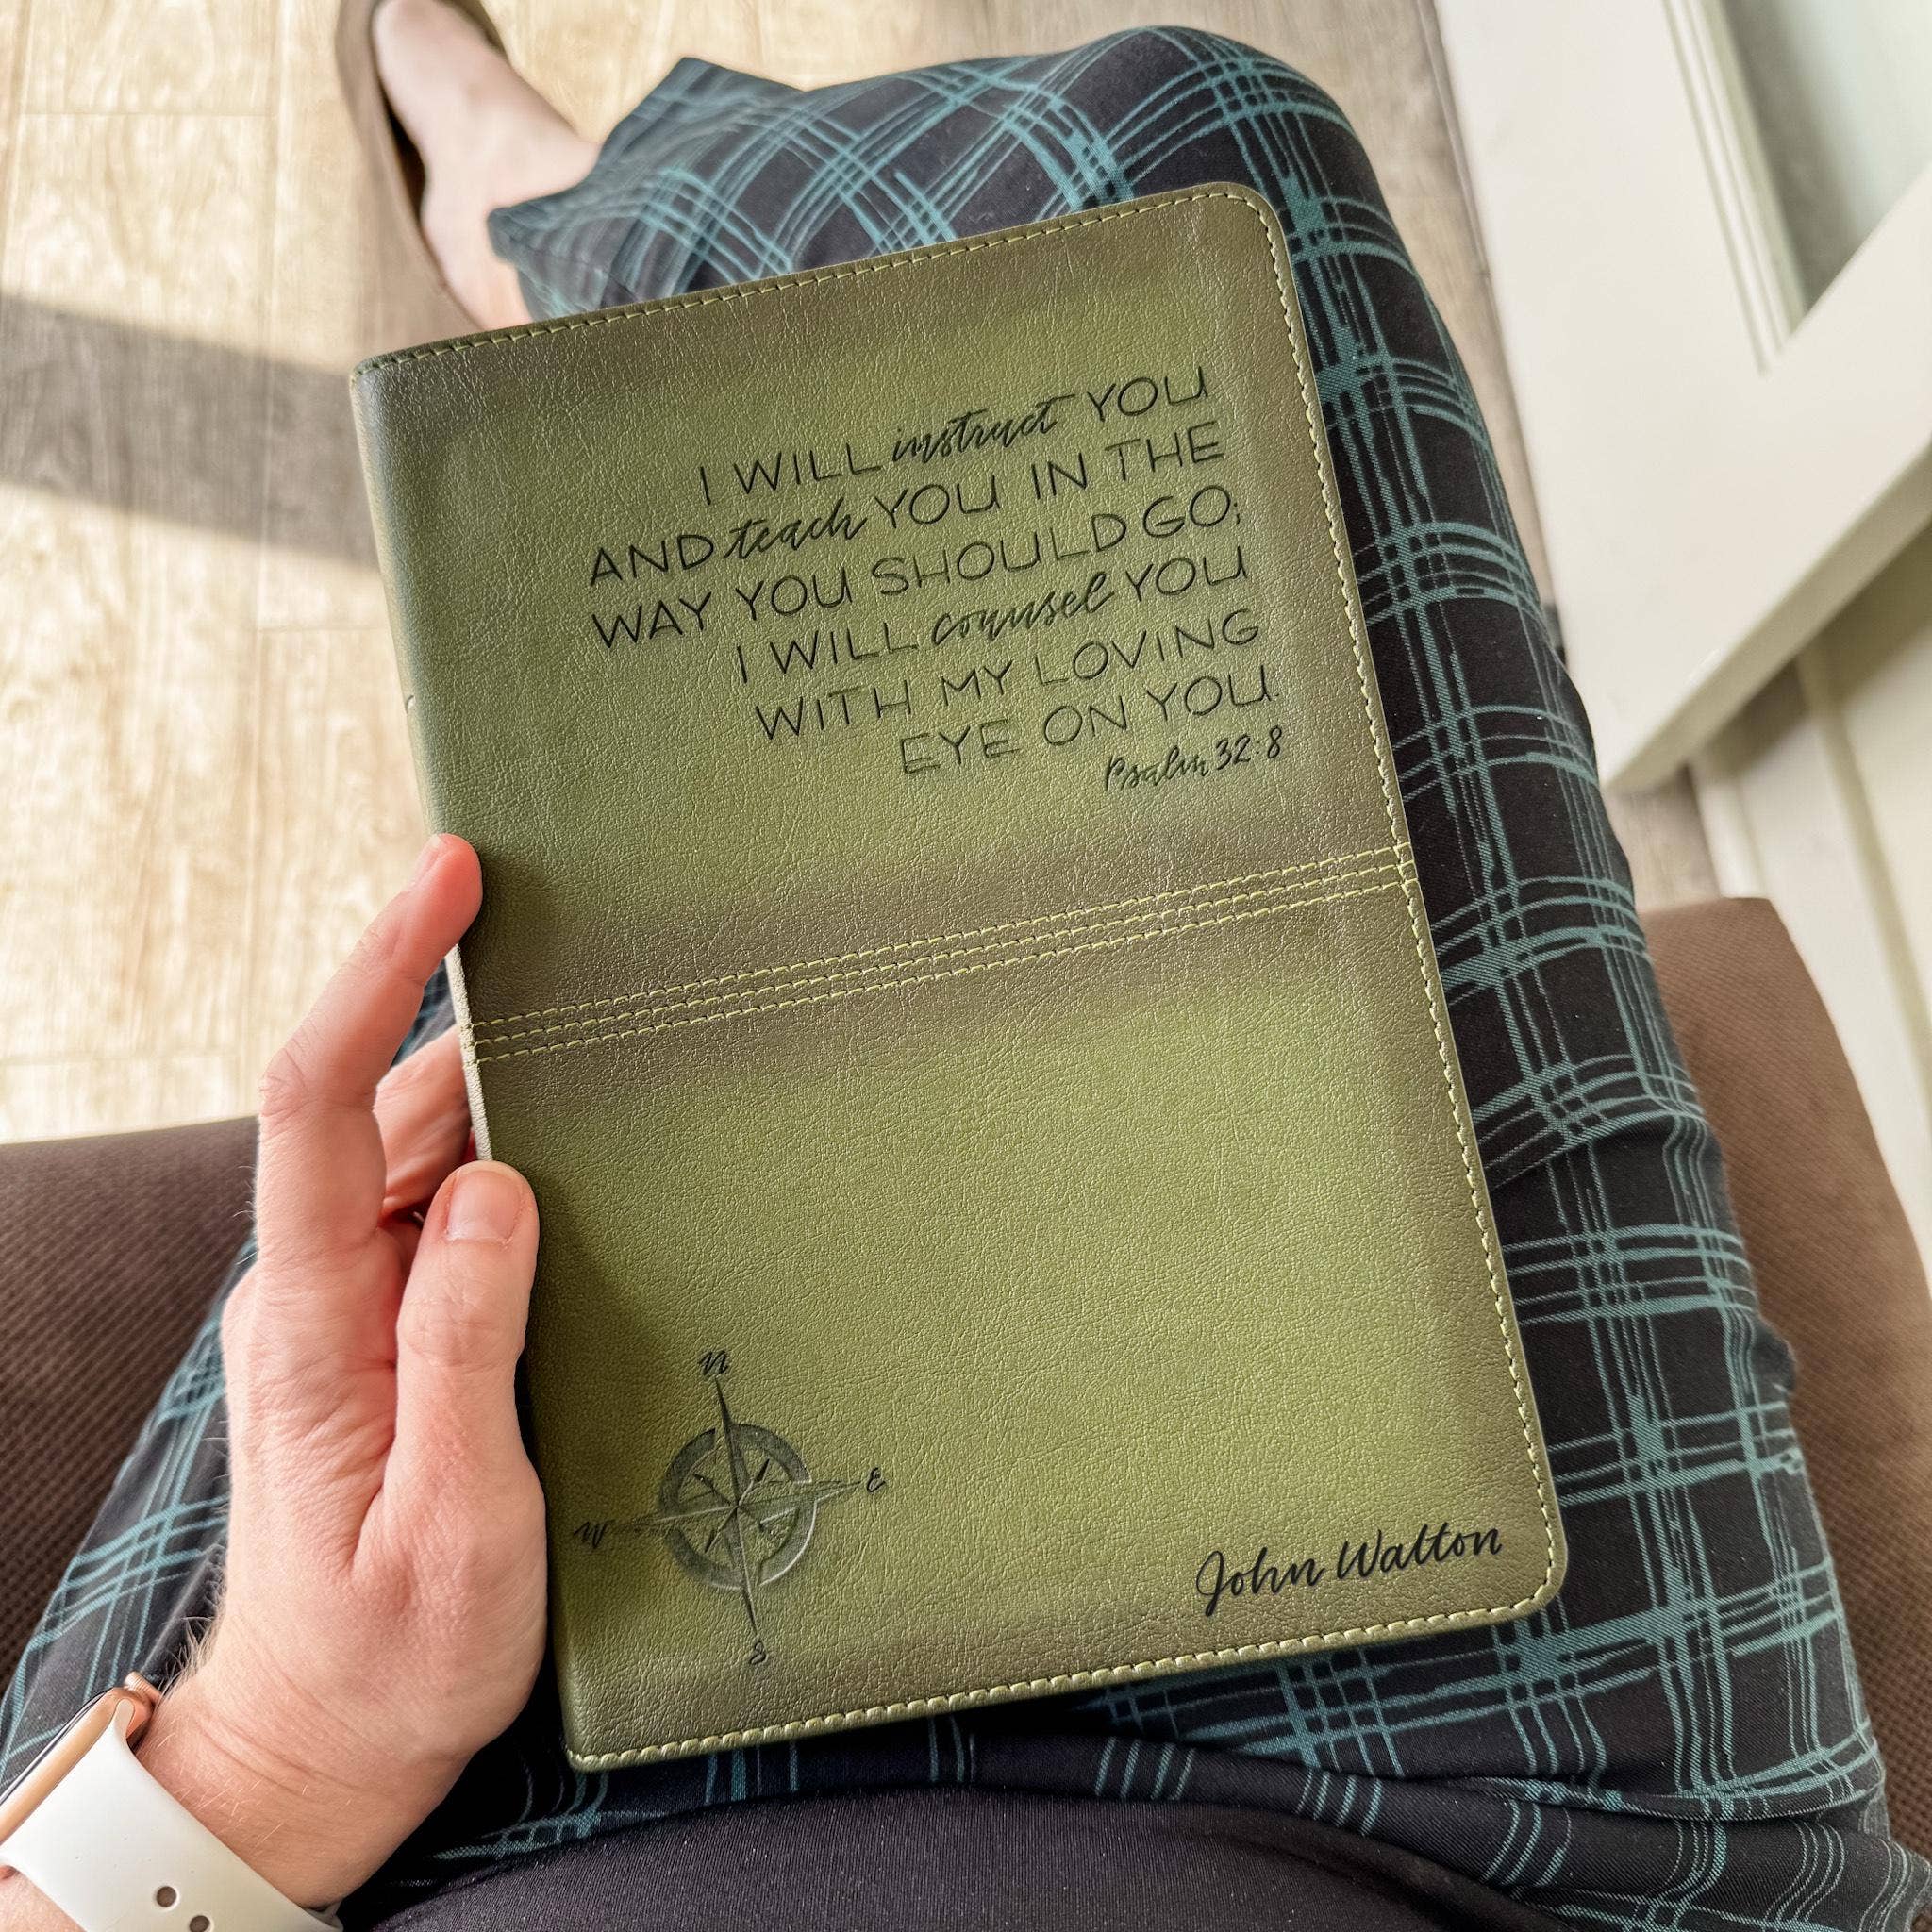 I WILL instruct YOU
AND teach YOU IN THE
WAY YOU SHOULD GO;
I WILL counsel YOU
WITH MY LOVING
EYE ON YOU.
Psalm 32:8
N
W E
S
John Walton